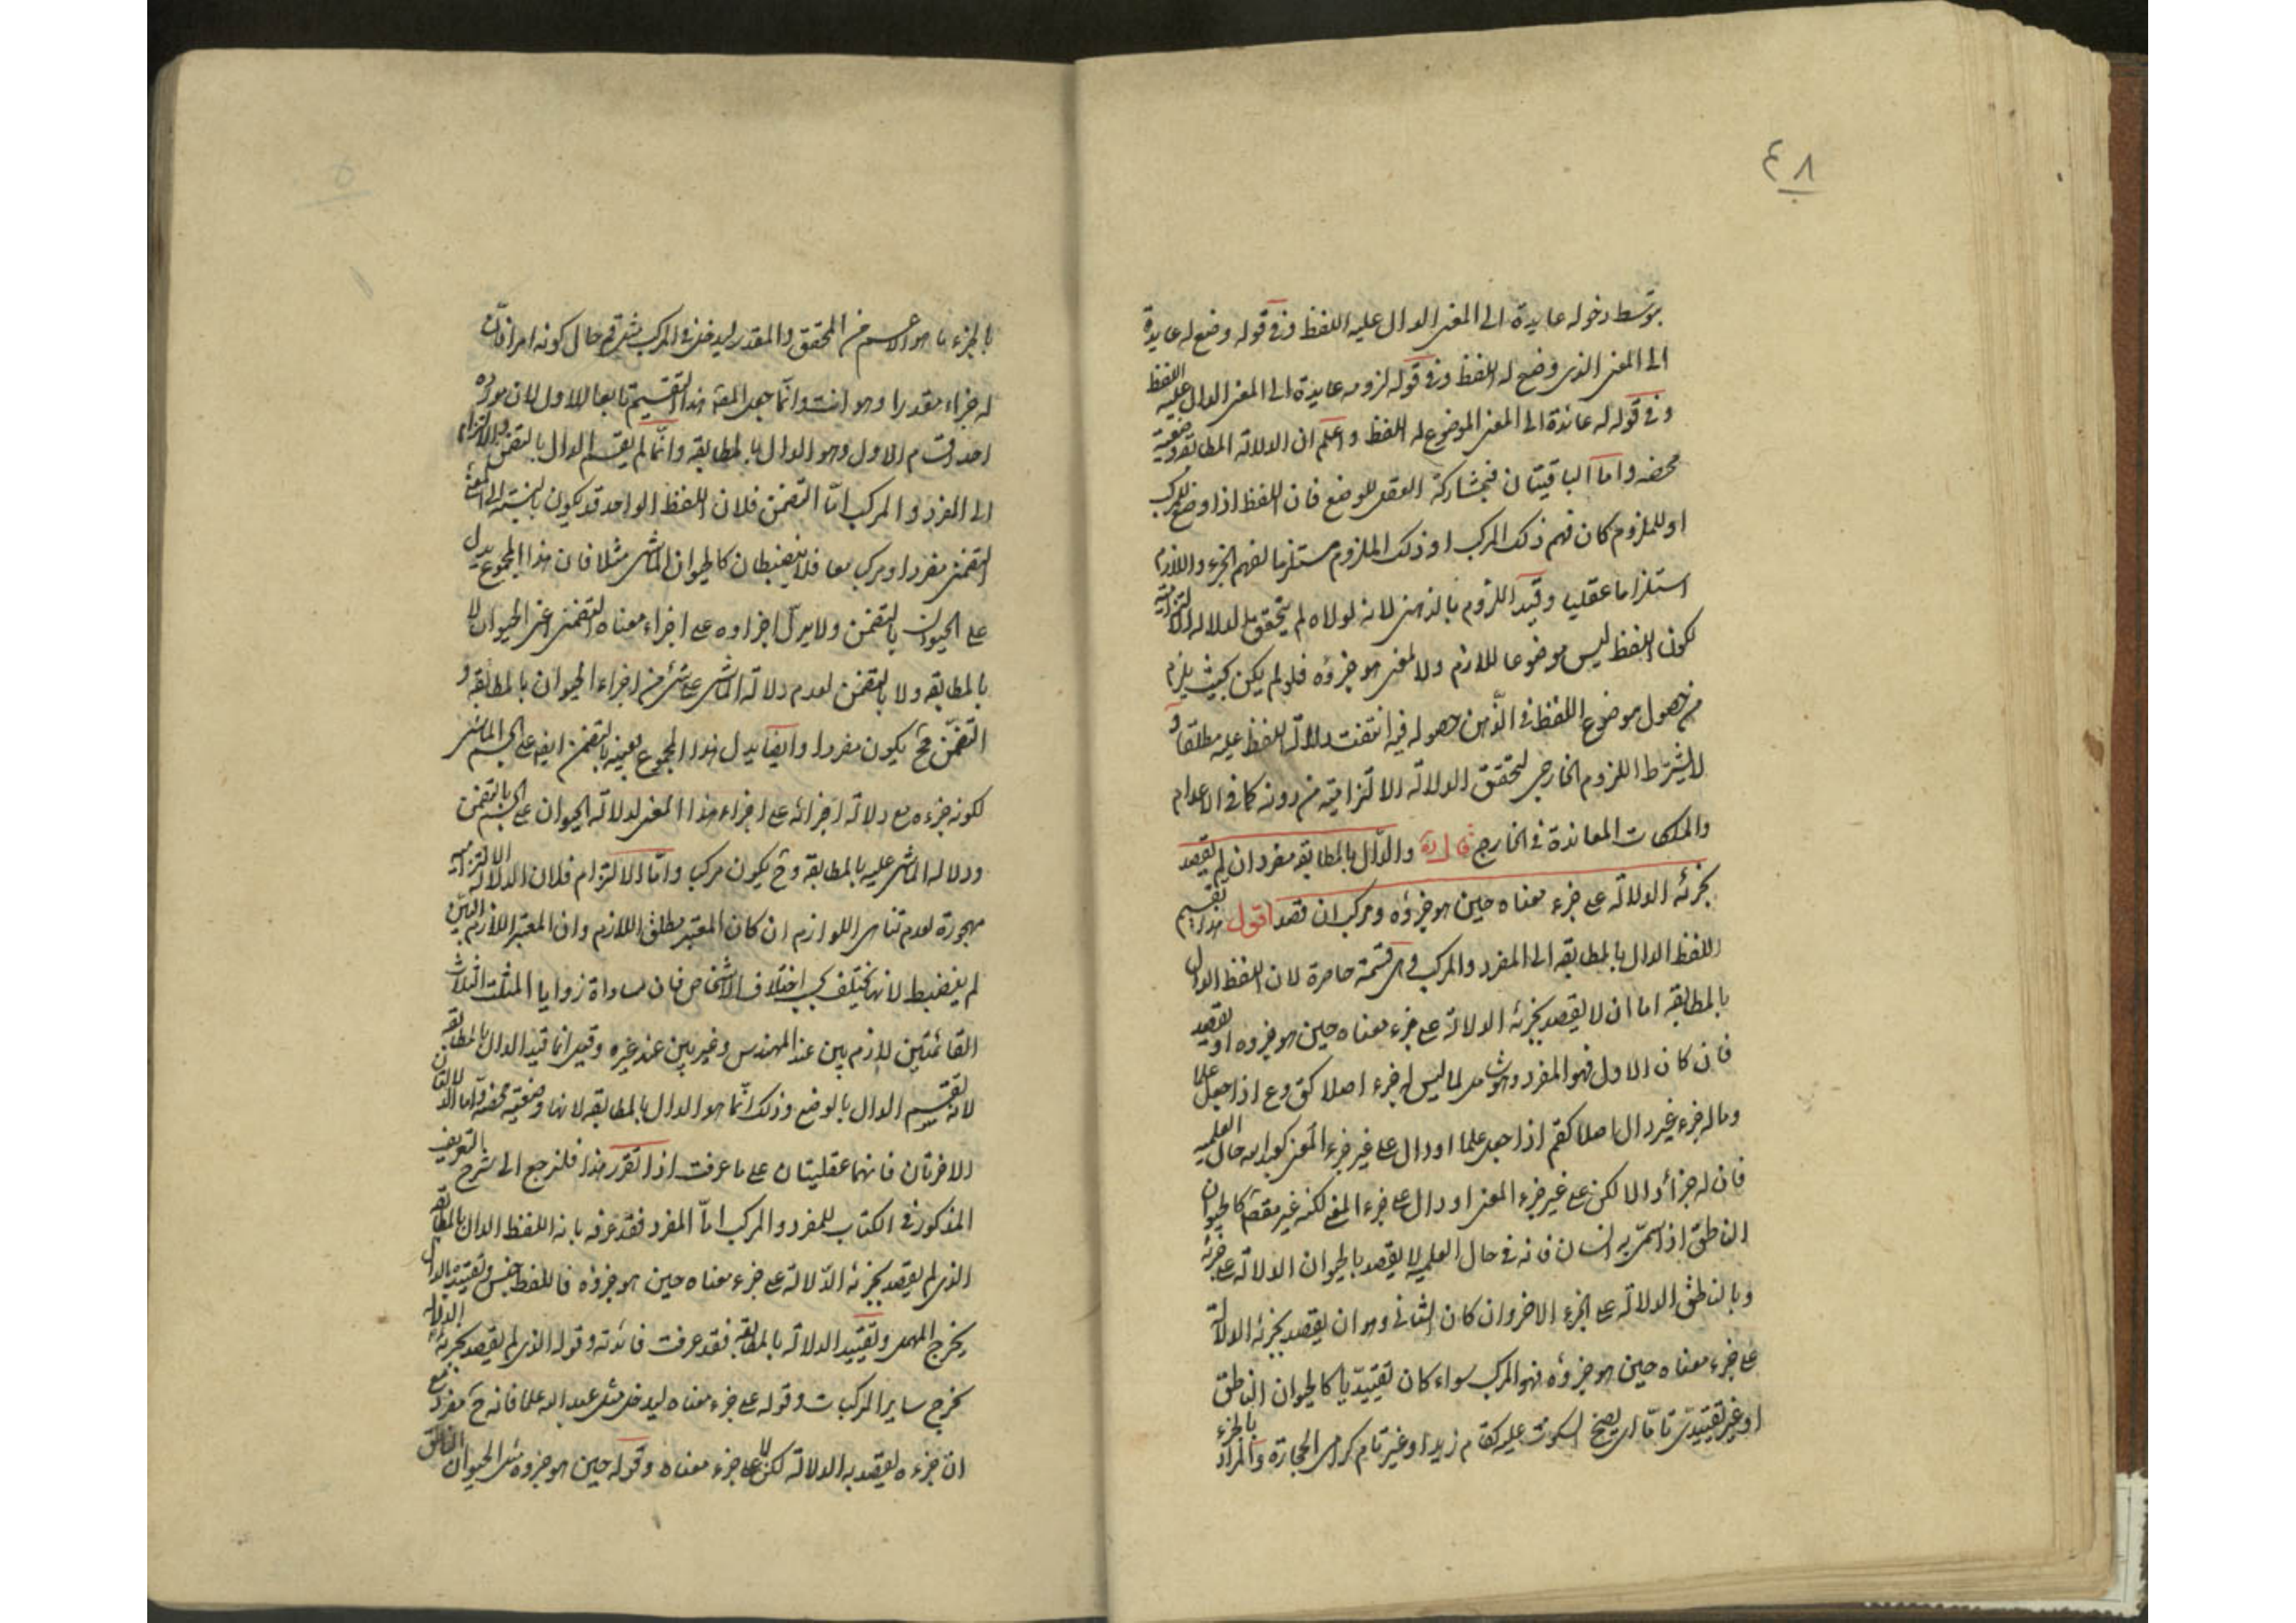 ٤٨
بتوسط دخوله عايدة الى المعنى الدال عليه اللفظ وفى قوله وضع له عايدة
الى المعنى الذى وضع له اللفظ وفى قوله لزومه عايدة الى المعنى الدال عليه اللفظ
وفى قوله له عائدة الى المعنى الموضوع له اللفظ واعلم ان الدلالة المطابقة وضعية
محضه واما الباقيتان فبمشاركة العقل للوضع فان اللفظ اذا وضع للمركب
او للملزوم كان فهم ذلك المركب او ذلك الملزوم مستلزما لفهم الجزء واللازم
استلزاما عقليا وقيد اللزوم بالذهنى لانه لولاه لم يتحقق الدلالة الالتزامية
لكون اللفظ ليس موضوعا للازم ولا لمعنى هو جزؤه فلو لم يكن بحيث يلزم
من حصول موضوع اللفظ فى الذهن حصوله فيه انتفت دلالة اللفظ عليه مطلقا و
لا يشترط اللزوم الخارجى لتحقق الدلالة الالتزامية من دونه كما فى الاعدام
والملكات المعاندة فى الخارج قال والدال بالمطابقة مفرد ان لم يقصد
بجزئه الدلالة على جزء معناه حين هو جزؤه ومركب ان قصد اقول هذا تقسيم
اللفظ الدال بالمطابقة الى المفرد والمركب وهى قسمة حاصرة لان اللفظ الدال
بالمطابقة اما ان لا يقصد بجزئه الدلالة على جزء معناه حين هو جزوه او يقصد
فان كان الاول فهو المفرد وهو شامل لما ليس له جزء اصلا كق وع اذا جعل علما
وما له جزء غير دال اصلا كقم اذا جعل علما او دال على غير جزء المعنى كعبد الله حال العلمية
فان له جزأ دالا لكن على غير جزء المعنى او دال على جزء المعنى لكنه غير مقصود كالحيوان
الناطق اذا سمى به انسان فانه فى حال العلمية لا يقصد بالحيوان الدلالة على جزئه
وبالناطق الدلالة على الجزء الاخر وان كان الثانى وهو ان يقصد بجزئه الدلالة
على جزء معناه حين هو جزؤه فهو المركب سواء كان تقييديا كالحيوان الناطق
او غير تقييدى تاما اى يصح السكوت عليه كقام زيد او غير تام كرامى الحجارة والمراد بالجزء
بالجزء ما هو الاعم من المحقق والمقدر ليدخل فى المركب مثل قم حال كونه امرا فان
له جزاء مقدرا وهو انت وانما جعل المص هذا التقسيم تابعا للاول لان مورده
احد اقسام الاول وهو الدال بالمطابقة وانما لم يقسم الدال بالتضمن والالتزام
الى المفرد والمركب اما التضمن فلان اللفظ الواحد قد يكون بالنسبة الى المعنى
التضمنى مفردا ومركبا معا فلا ينضبطان كالحيوان الماشى مثلا فان هذا المجموع يدل
على الحيوان بالتضمن ولا يدل اجزاوه على اجزاء معناه التضمنى اعنى الحيوان لا
بالمطابقة ولا بالتضمن لعدم دلالة الماشى على شئ من اجزاء الحيوان بالمطابقة و
التضمن فح يكون مفردا وايضا يدل هذا المجموع بعينه بالتضمن ايضا على الجسم الماشى
لكونه جزءه مع دلالة اجزائه على اجزاء هذا المعنى لدلالة الحيوان على الجسم بالتضمن
ودلالة الماشى عليه بالمطابقة وح يكون مركبا واما الالتزام فلان الدلالة الالتزامية
مهجورة لعدم تناهى اللوازم ان كان المعتبر مطلق اللازم وان المعتبر اللازم البين
لم ينضبط لانها تختلف بحسب اختلاف الاشخاص فان مساواة زوايا المثلث الثلاث
القائمتين لازم بين عند المهندس وغير بين عند غيره وقيل انما قيد الدال بالمطابقة
لانه تقسيم الدال بالوضع وذلك انما هو الدال بالمطابقة لانها وضعية محضة واما الدلالتان
الاخرتان فانهما عقليتان على ما عرفت اذا تقرر هذا فلنرجع الى شرح التعريف
المذكور فى الكتاب للمفرد والمركب اما المفرد فقد عرفه بانه اللفظ الدال بالمطابقة
الذى لم يقصد بجزئه الدلالة على جزء معناه حين هو جزؤه فاللفظ جنس وتقييده بالدال
يخرج المهمل وتقييد الدلالة بالمطابقة فقد عرفت فائدته وقوله الذى لم يقصد بجزئه الدلالة
يخرج ساير المركبات وقوله على جزء معناه ليدخل مثل عبد الله علما فانه ح مفرد مع
ان جزءه يقصد به الدلالة لكن لا على جزء معناه وقوله حين هو جزوه مثل الحيوان الناطق